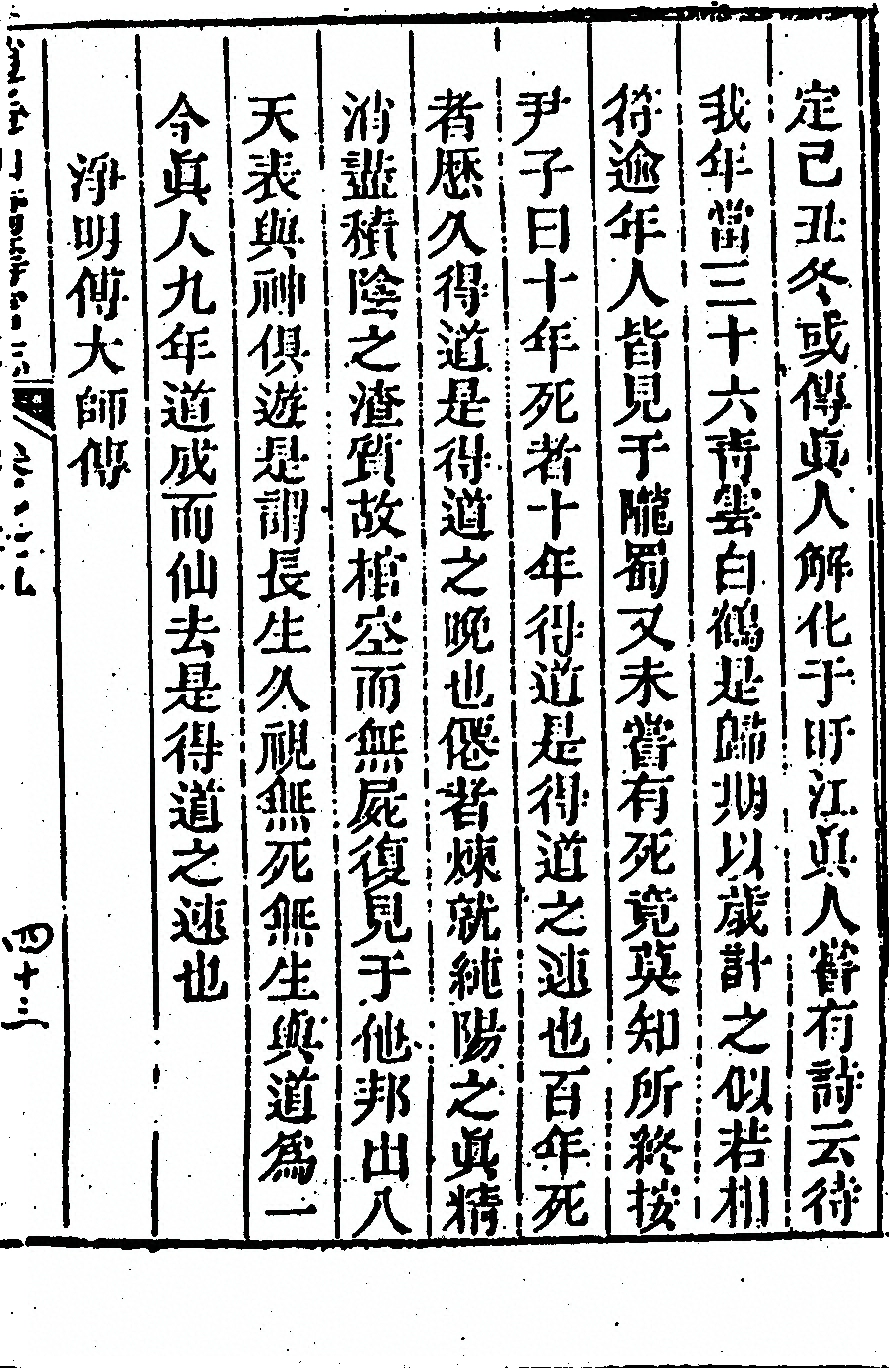 定己丑冬或傳眞人解化于盱江眞人嘗有詩云待
我年當三十六靑雲白鶴是歸期以歲計之似若相
符逾年人皆見于隴蜀又未嘗有死竟莫知所終按
尹子曰十年死者十年得道是得道之速也百年死
者歷久得道是得道之晩也僊者煉就純陽之眞精
消盡積陰之渣質故棺空而無屍復見于他邦出八
天表與神俱遊是謂長生久視無死無生與道爲一
今眞人九年道成而仙去是得道之速也
淨明傅大師傳
四十三